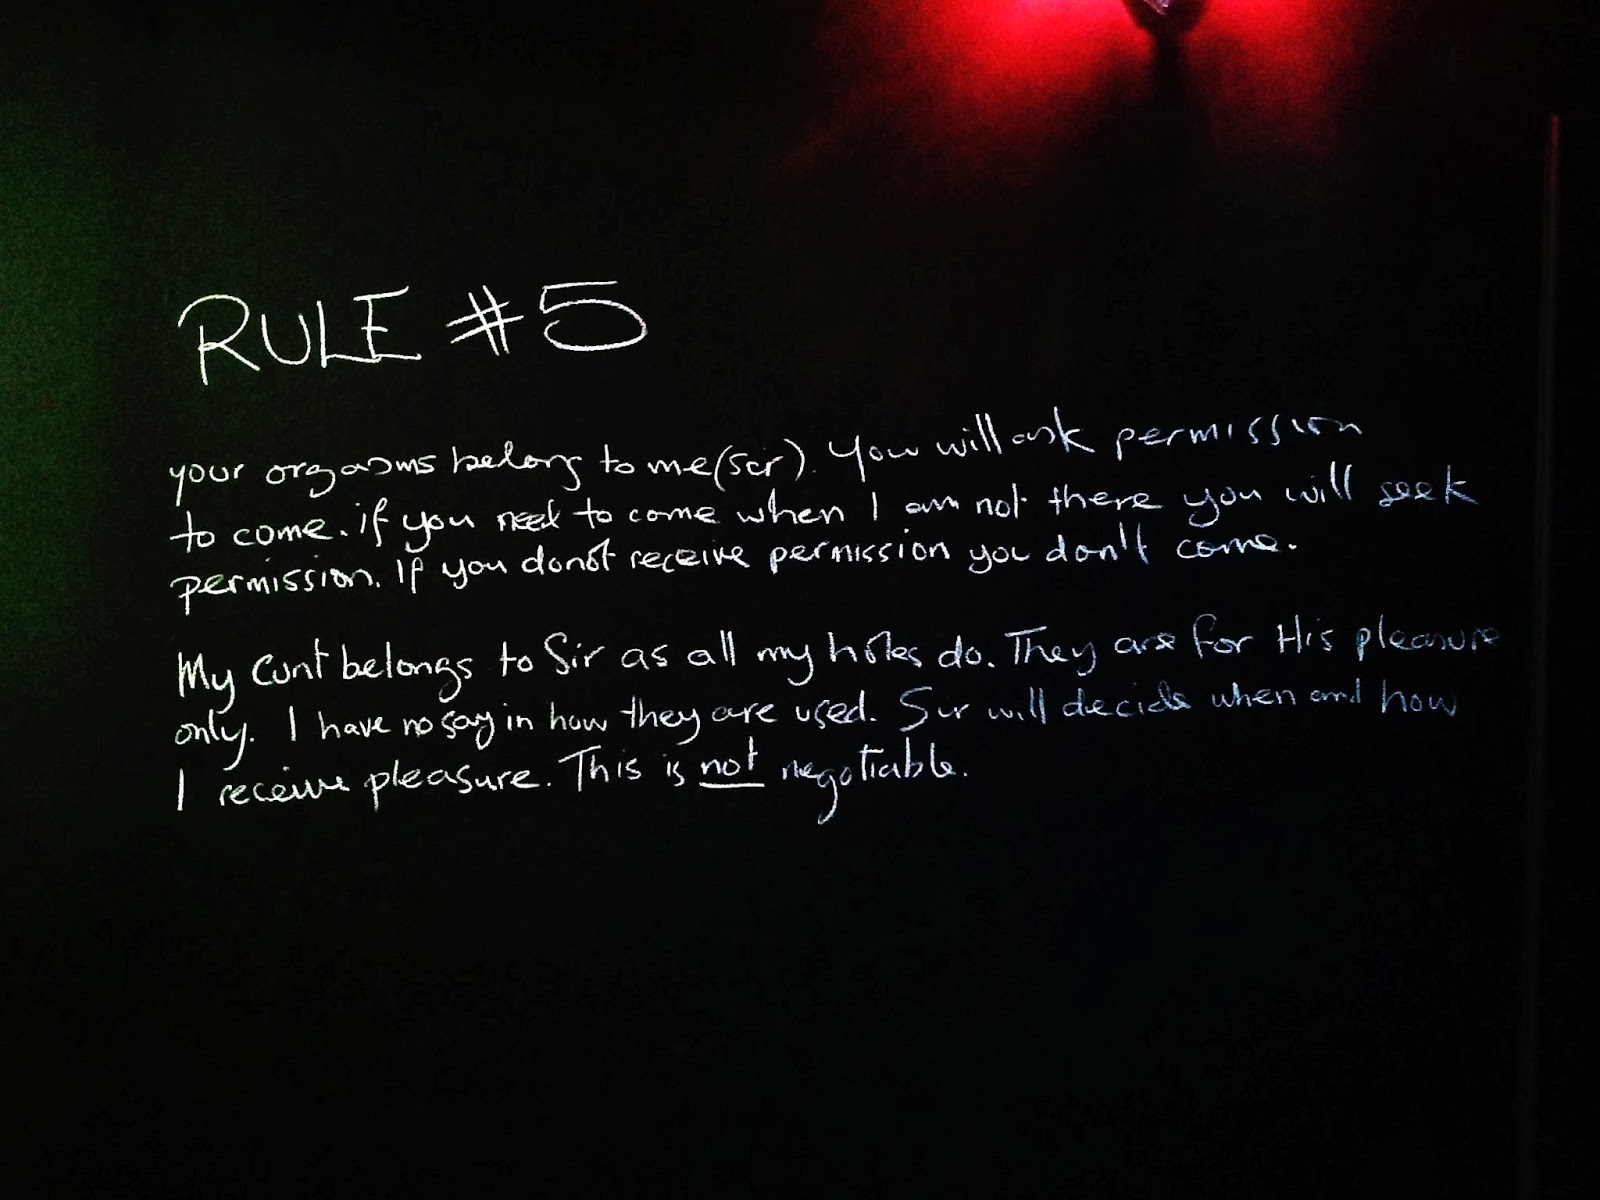 RULE #5
your orgasms belong to me (sir). You will ask permission
to come. if you need to come when I am not there you will seek
permission. If you donot receive permission you don't come.
My cunt belongs to Sir as all my holes do. They are for His pleasure
only. I have no say in how they are used. Sir will decide when and how
I receive pleasure. This is not negotiable.